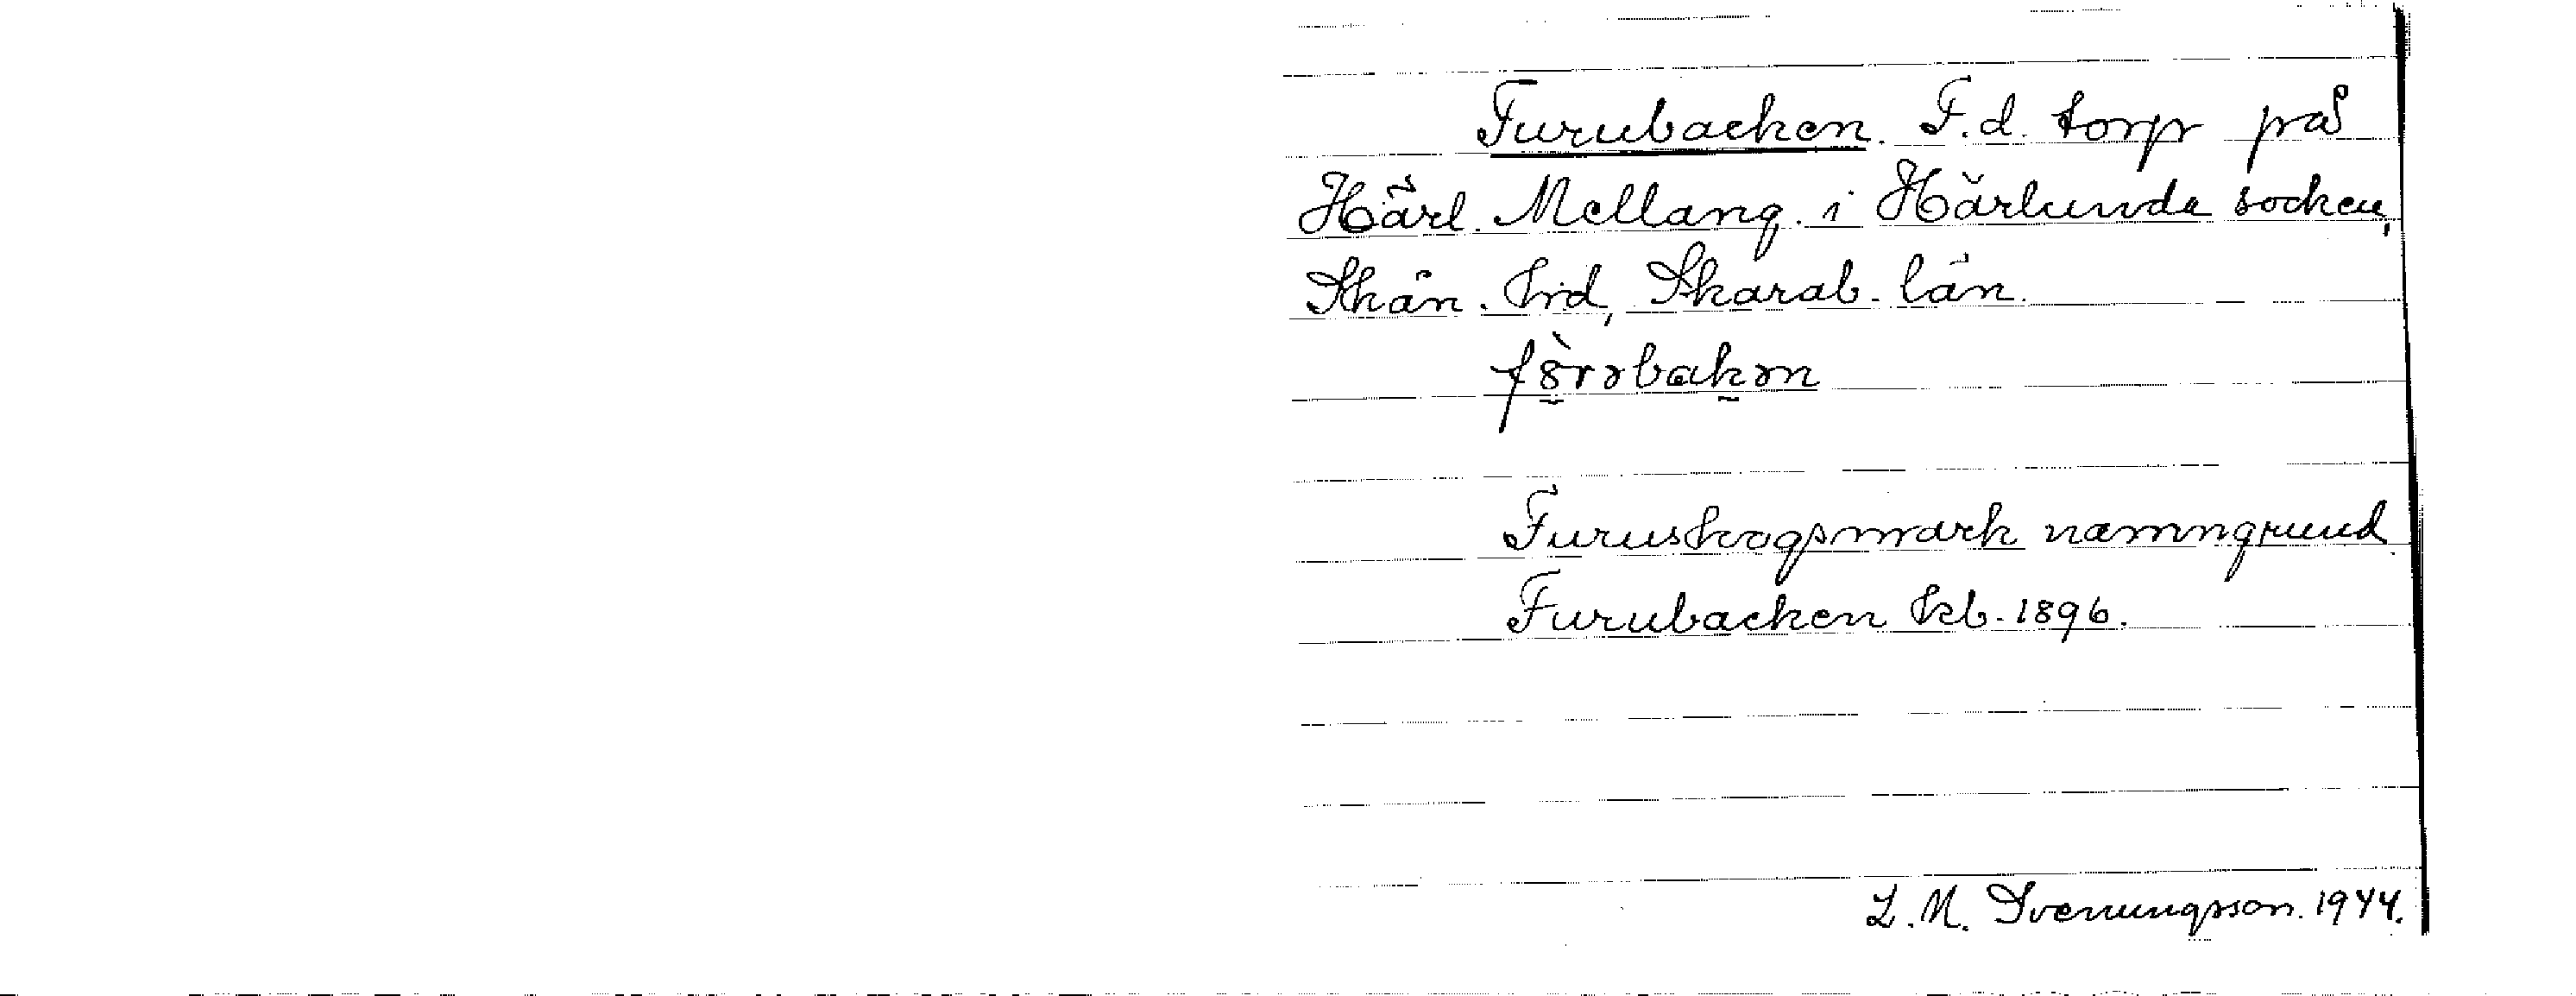 Furubacken. F.d. torp på
Härl. Mellang. i Härlunda socken,
Skån. hd, Skarab. län.
Furuskogsmark namngrund
Furubacken kb. 1896.
L. M. Svenungsson. 1944.